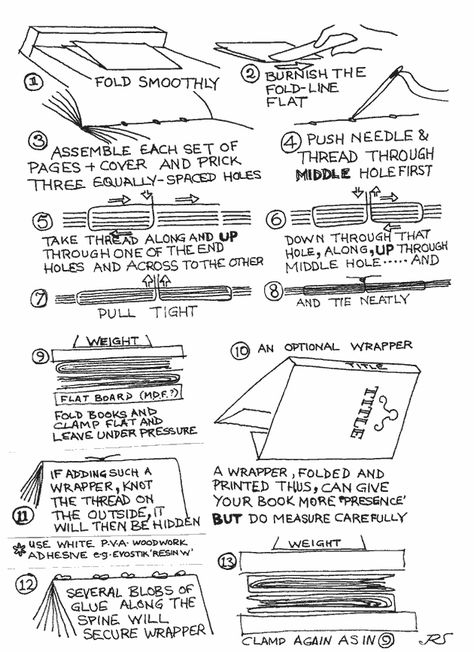 ① FOLD SMOOTHLY
② BURNISH THE
FOLD-LINE
FLAT
③ ASSEMBLE EACH SET OF
PAGES + COVER AND PRICK
THREE EQUALLY-SPACED HOLES
④ PUSH NEEDLE &
THREAD THROUGH
MIDDLE HOLE FIRST
⑤
TAKE THREAD ALONG AND UP
THROUGH ONE OF THE END
HOLES AND ACROSS TO THE OTHER
⑥
DOWN THROUGH THAT
HOLE, ALONG, UP THROUGH
MIDDLE HOLE ..... AND
⑦
PULL TIGHT
⑧
AND TIE NEATLY
⑨ WEIGHT
FLAT BOARD (M.D.F.?)
FOLD BOOKS AND
CLAMP FLAT AND
LEAVE UNDER PRESSURE
⑩ AN OPTIONAL WRAPPER
TITLE
TITLE
A WRAPPER, FOLDED AND
PRINTED THUS, CAN GIVE
YOUR BOOK MORE 'PRESENCE'
BUT DO MEASURE CAREFULLY
⑪ IF ADDING SUCH A
WRAPPER, KNOT
THE THREAD ON
THE OUTSIDE, IT
WILL THEN BE HIDDEN
* USE WHITE P.V.A. WOODWORK
ADHESIVE e.g. EVOSTIK 'RESIN W'
⑫ SEVERAL BLOBS OF
GLUE ALONG THE
SPINE WILL
SECURE WRAPPER
⑬ WEIGHT
CLAMP AGAIN AS IN ⑨ JRS